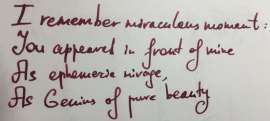 I remember miraculous moment:
You appeared in front of mine
As ephemeric mirage,
As Genius of pure beauty